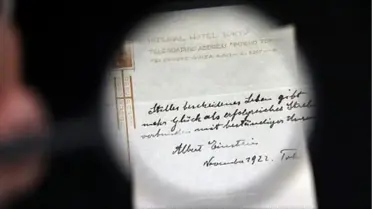 HOTEL
Stilles bescheidenes Leben gibt
mehr Glück als erfolgreiches Streb
verbunden mit beständiger Unru
Albert Einstein
November 1922. Tok